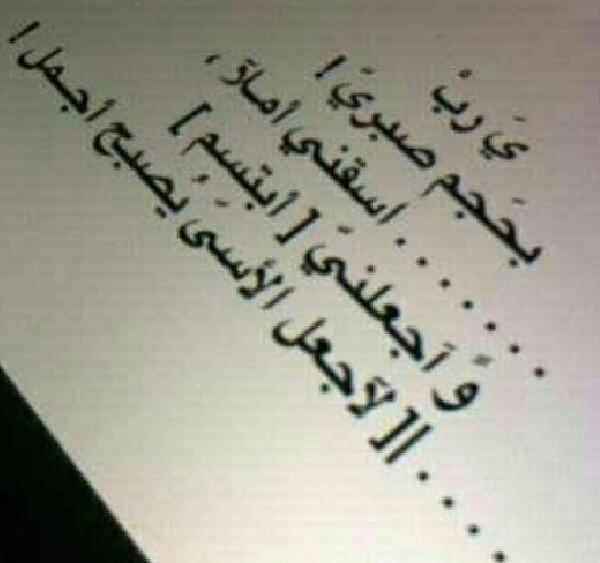 يَ ربْ
بحَجم صبريَ !
. . . . . . . أسقني أماﻧ ،
وً آجعلنيَ [ أبتسُِم ]
. . . . ا[ لآجعل الأسىَ يَصبح أجمل !